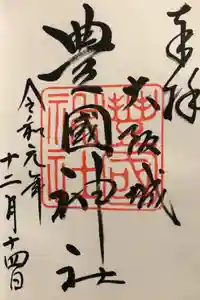 奉拝
大阪城
豊國神社
令和元年
十二月十四日